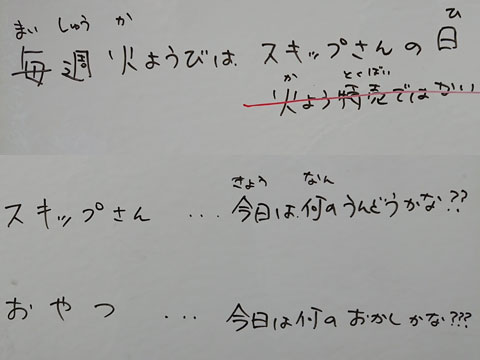 まい しゅう か
毎週火ようびは スキップさんの日
ひ
か とくばい
火よう特売ではない
きょう なん
スキップさん ... 今日は何のうんどうかな??
おやつ ... 今日は何のおかしかな???